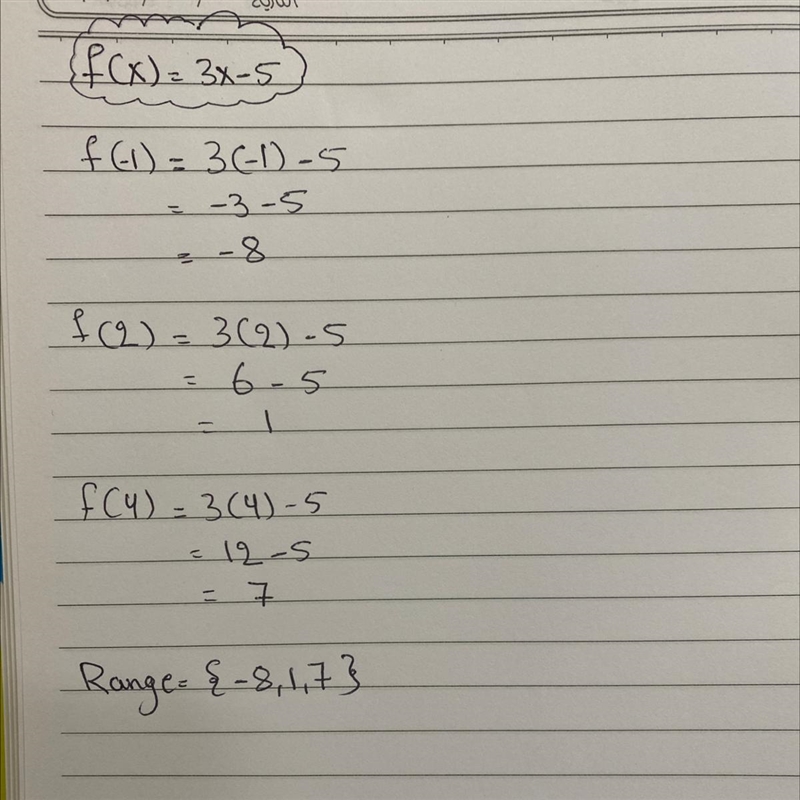 f(x) = 3x - 5
f(-1) = 3(-1) - 5
= -3 - 5
= -8
f(2) = 3(2) - 5
= 6 - 5
= 1
f(4) = 3(4) - 5
= 12 - 5
= 7
Range = {-8, 1, 7}